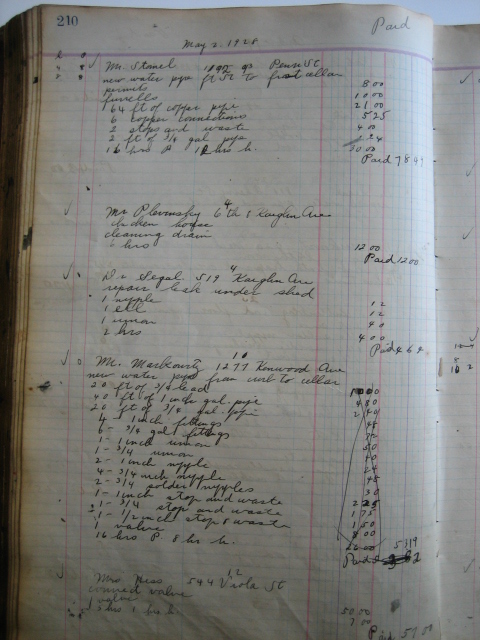 210
Paid
May 2. 1928
Mr. Stomel Penn St
new water pipe ft St to first cellar
permits 8 00
ferrells 10 00
64 ft of copper pipe 21 00
6 copper connections 5 25
2 stops and waste 4 00
2 ft of 3/4 gal. pipe 24
16 hrs P 12 hrs h. 30 00
Paid 78 49
Mr Plevinsky 6th & Kaighn Ave
chicken house
cleaning drain
6 hrs 12 00
Paid 12 00
Segal. 519 Kaighn Ave
repair leak under shed
1 nipple 12
1 ell 12
1 union 40
2 hrs 4 00
Paid 4 64
Mr. Markowitz 1277 Kenwood Ave
new water pipe from curb to cellar
20 ft of 3/4 lead
40 ft of 1 inch gal. pipe 4 80
20 ft of 3/4 gal. pipe 2 40
4 - 1 inch fittings 48
6 - 3/4 gal fittings 72
1 - 1 inch union 50
1 - 3/4 union 40
2 - 1 inch nipple 24
4 - 3/4 inch nipple 48
2 - 3/4 solder nipples 30
1 - 1 inch stop and waste 2 25
1 - 3/4 stop and waste 1 75
1 - 1/2 inch stop & waste 1 50
1 valve
16 hrs P 8 hrs h. 26 00
Paid 53 19
Mrs Hess 544 Viola St
valve
1 valve 50 00
3 hrs 7 00
Paid 57 00